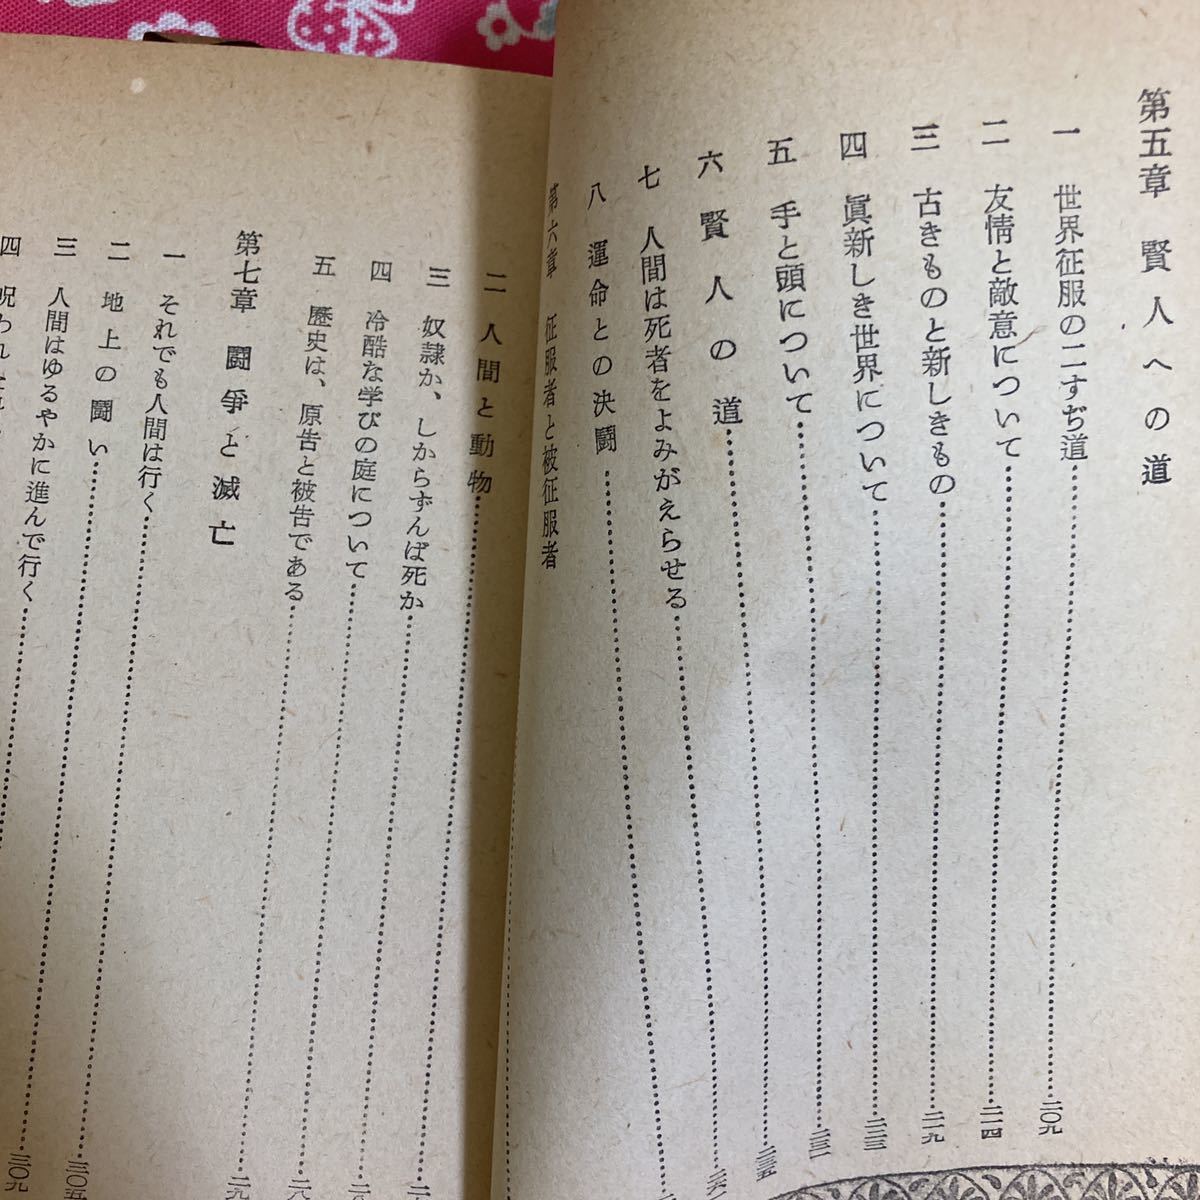 第五章　賢人への道
一　世界征服の二すぢ道……二〇九
二　友情と敵意について……二一四
三　古きものと新しきもの……二一九
四　眞新しき世界について……二二三
五　手と頭について……二三一
六　賢人の道……二三五
七　人間は死者をよみがえらせる……
八　運命との決闘……
第六章　征服者と被征服者
二　人間と動物……
三　奴隷か、しからずんば死か……
四　冷酷な学びの庭について……
五　歴史は、原告と被告である……
第七章　闘爭と滅亡
一　それでも人間は行く……
二　地上の闘い……三〇五
三　人間はゆるやかに進んで行く……三〇九
四　呪われ